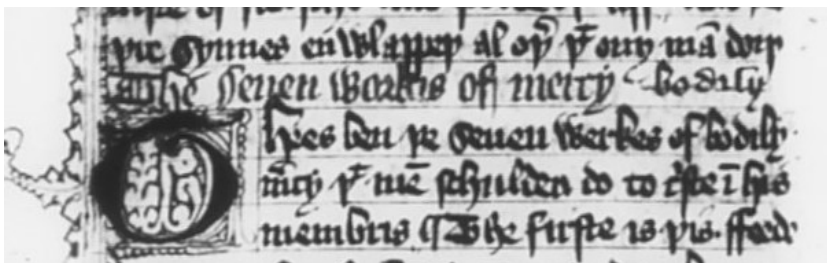 þre synnes enwlappeþ al oþ' þͭ ony mā doiþ
The seuen workis of mercy bodily
Thes ben þe seuen werkes of bodily
m̄cy þͭ mē schulden do to c̄ste ī his
membris ¶ The firste is þis. ffede